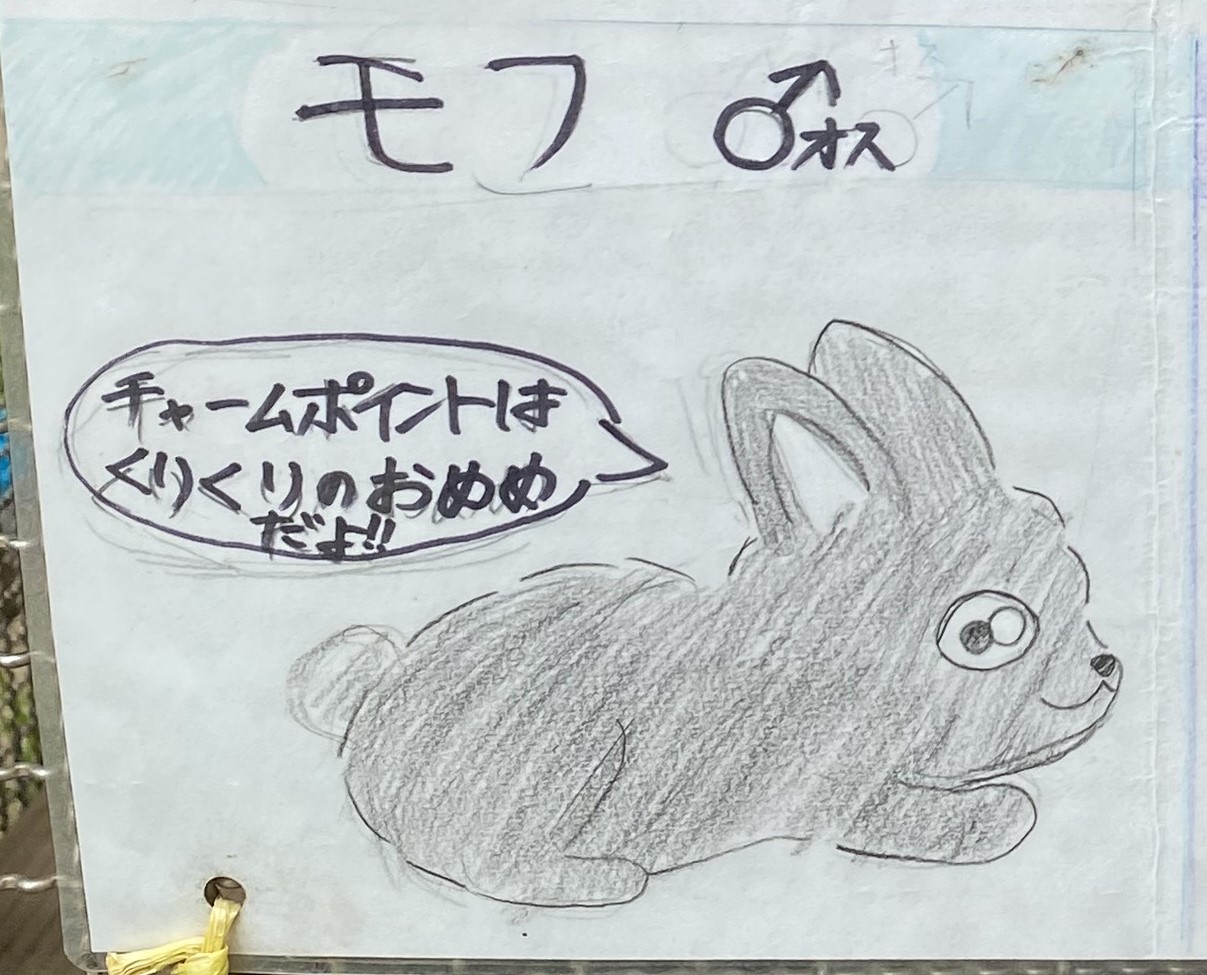 モフ ♂オス
チャームポイントは
くりくりのおめめ
だよ!!